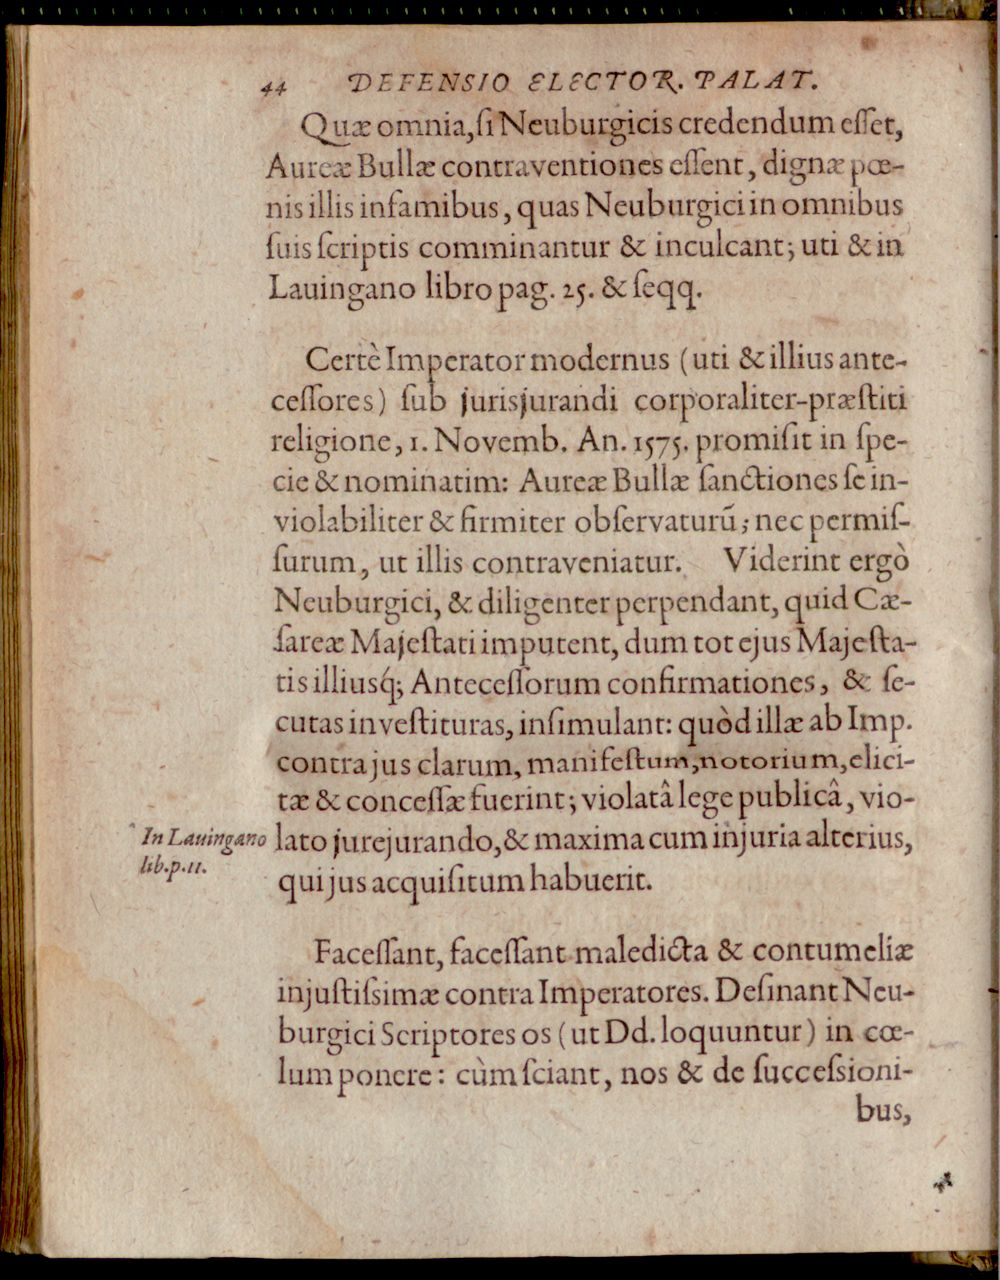 44 DEFENSIO ELECTOR. PALAT.
Quæ omnia, ſi Neuburgicis credendum eſſet,
Aureæ Bullæ contraventiones eſſent, dignæ pœ-
nis illis infamibus, quas Neuburgici in omnibus
ſuis ſcriptis comminantur & inculcant; uti & in
Lauingano libro pag. 25. & ſeqq.
Certè Imperator modernus (uti & illius ante-
ceſſores) ſub jurisjurandi corporaliter-præſtiti
religione, 1. Novemb. An. 1575. promiſit in ſpe-
cie & nominatim: Aureæ Bullæ ſanctiones ſe in-
violabiliter & firmiter obſervaturū; nec permiſ-
ſurum, ut illis contraveniatur. Viderint ergò
Neuburgici, & diligenter perpendant, quid Cæ-
ſareæ Majeſtati imputent, dum tot ejus Majeſta-
tis illiusq́; Anteceſſorum confirmationes, & ſe-
cutas inveſtituras, inſimulant: quòd illæ ab Imp.
contra jus clarum, manifeſtum, notorium, elici-
tæ & conceſſæ fuerint; violatâ lege publicâ, vio-
In Lauingano
lib. p. 11.
lato jurejurando, & maxima cum injuria alterius,
qui jus acquiſitum habuerit.
Faceſſant, faceſſant maledicta & contumeliæ
injuſtiſsimæ contra Imperatores. Deſinant Neu-
burgici Scriptores os (ut Dd. loquuntur) in cœ-
lum ponere: cùm ſciant, nos & de ſucceſsioni-
bus,